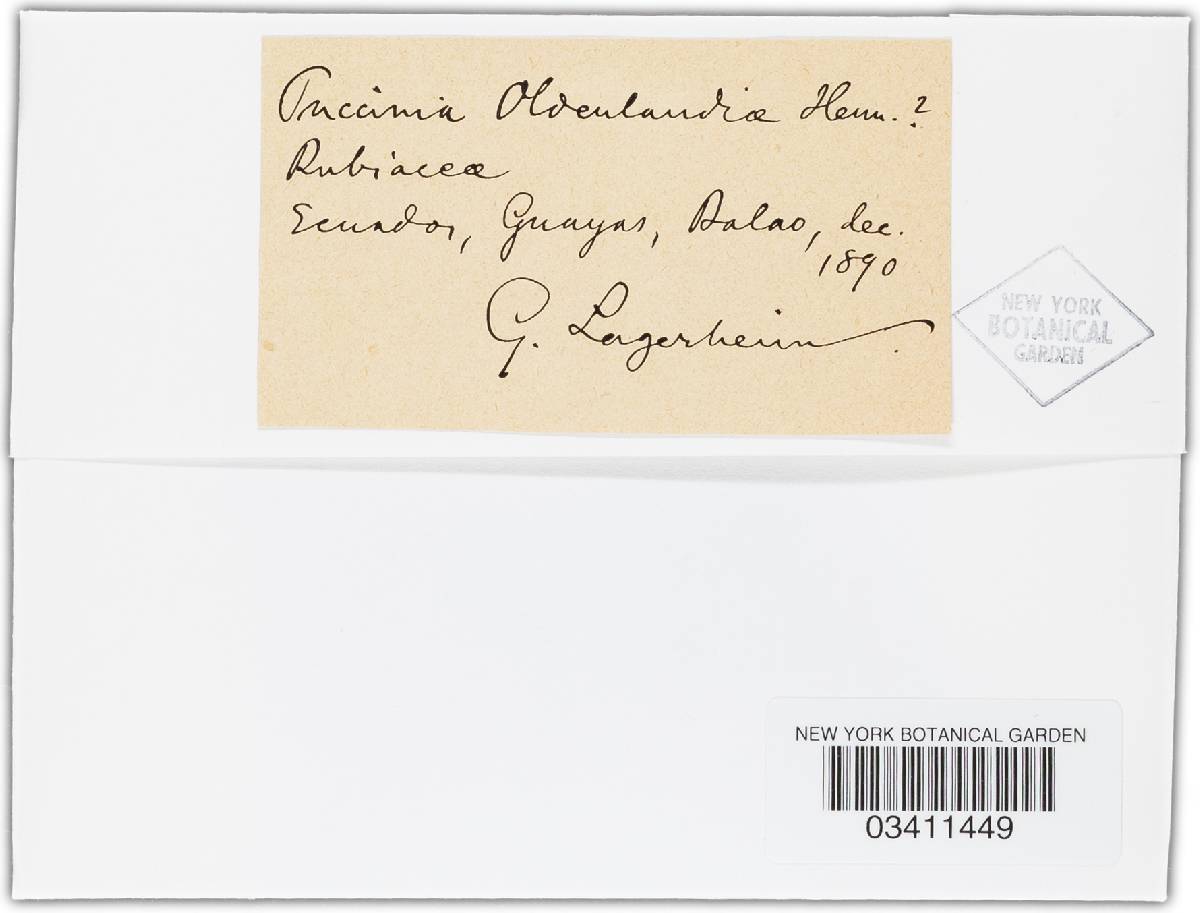 Puccinia Oldenlandiæ Henn.?
Rubiaceæ
Ecuador, Guayas, Balao, dec.
1890
G. Lagerheim.
NEW YORK
BOTANICAL
GARDEN
NEW YORK BOTANICAL GARDEN
03411449